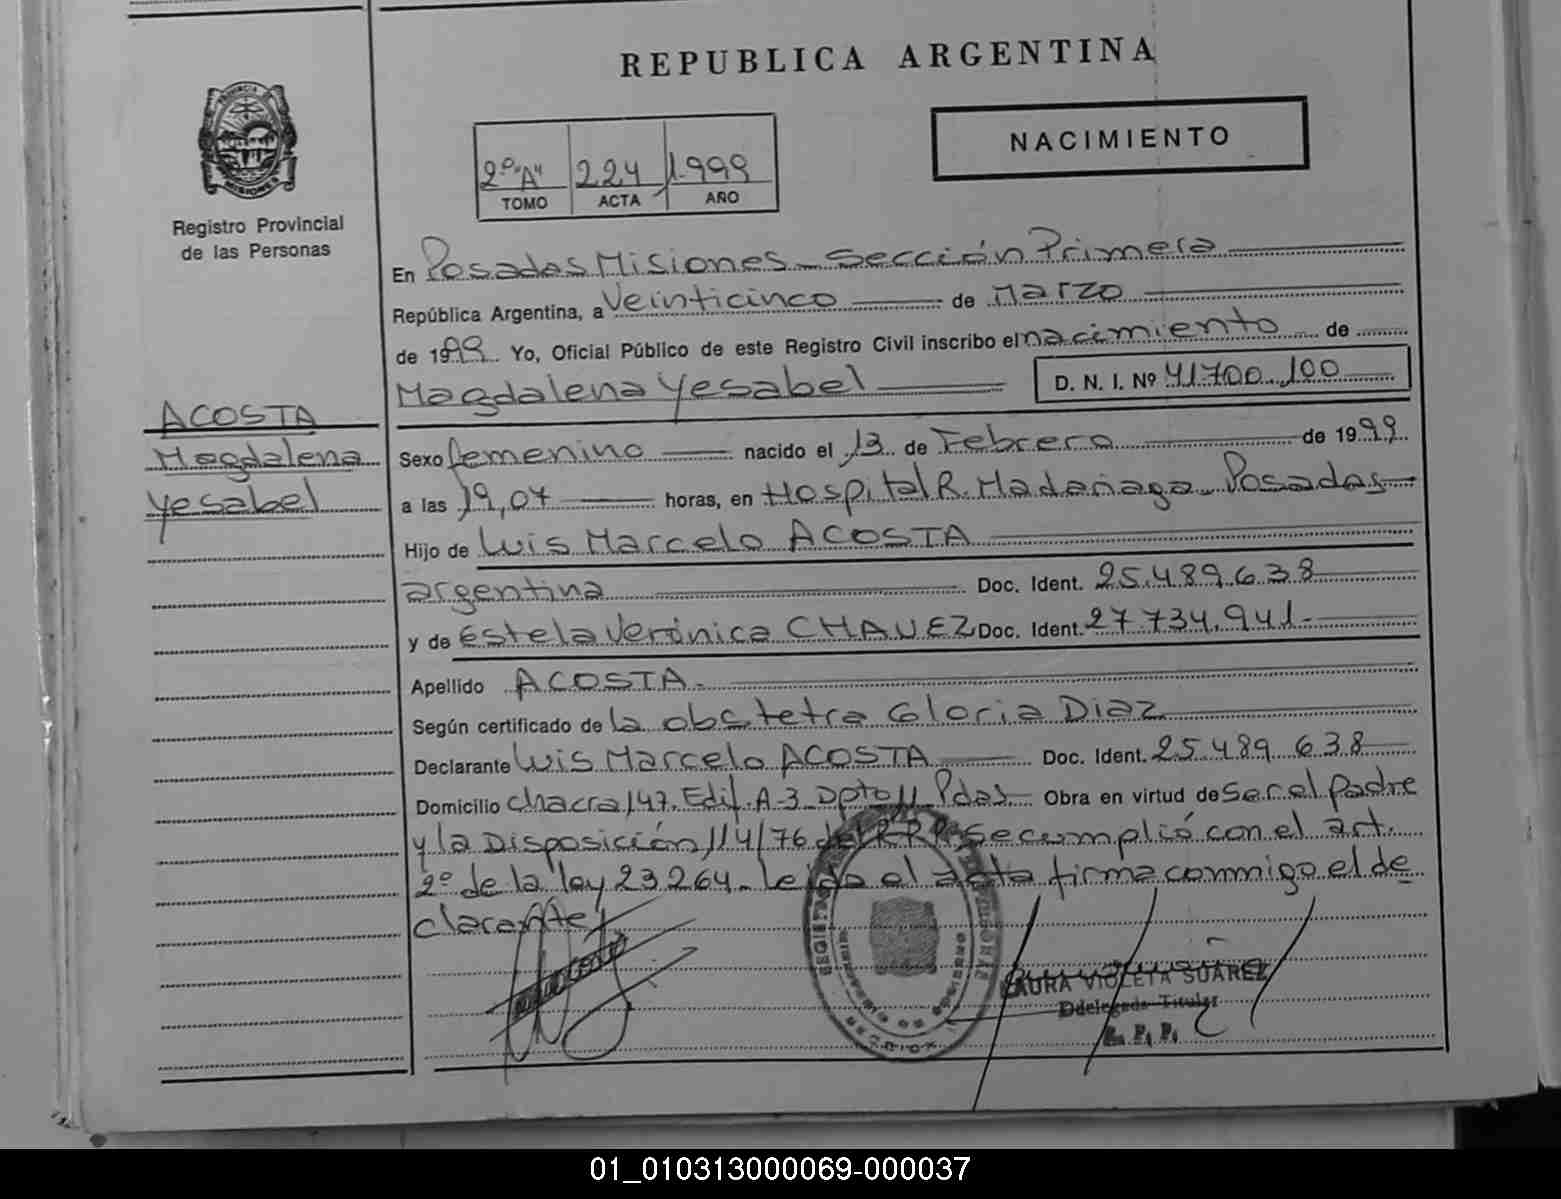 REPUBLICA ARGENTINA
NACIMIENTO
2º "A" 224 1.999
TOMO ACTA AÑO
PROVINCIA
MISIONES
Registro Provincial
de las Personas
En Posadas Misiones - Sección Primera
República Argentina, a Veinticinco de Marzo
de 1999 Yo, Oficial Público de este Registro Civil inscribo el nacimiento de
Magdalena Yesabel D. N. I. Nº 41.700.100
ACOSTA
Magdalena
Yesabel
Sexo femenino nacido el 13 de Febrero de 1999
a las 19,07 horas, en Hospital R. Madariaga - Posadas
Hijo de Luis Marcelo ACOSTA
argentina Doc. Ident. 25.489.638
y de Estela Verónica CHAVEZ Doc. Ident. 27.734.941.-
Apellido ACOSTA.
Según certificado de la obstetra Gloria Diaz
Declarante Luis Marcelo ACOSTA Doc. Ident. 25.489.638
Domicilio Chacra 147. Edif. A-3 Dpto 11 Pdas Obra en virtud de ser el padre
y la Disposición 114/76 del R.P.P. Se cumplió con el art.
2º de la ley 23.264 - Leída el acta firma conmigo el de
clarante
LAURA VIOLETA SUAREZ
Ddelegada Titular
R. P. P.
01_010313000069-000037